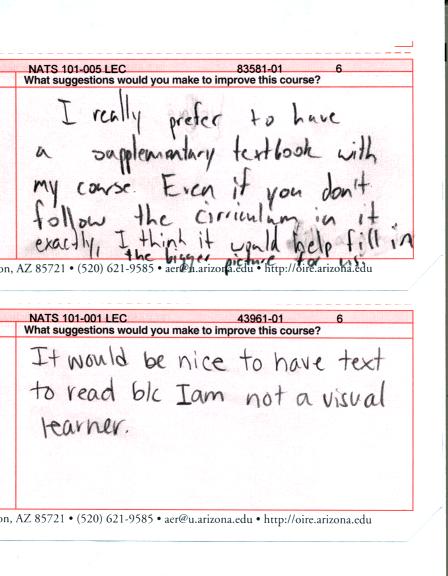 NATS 101-005 LEC 83581-01 6
What suggestions would you make to improve this course?
I really prefer to have
a supplementary textbook with
my course. Even if you don't
follow the cirriculum in it
exactly, I think it would help fill in
the bigger picture for us.
on, AZ 85721 • (520) 621-9585 • aer@u.arizona.edu • http://oire.arizona.edu
NATS 101-001 LEC 43961-01 6
What suggestions would you make to improve this course?
It would be nice to have text
to read b/c I am not a visual
learner.
on, AZ 85721 • (520) 621-9585 • aer@u.arizona.edu • http://oire.arizona.edu